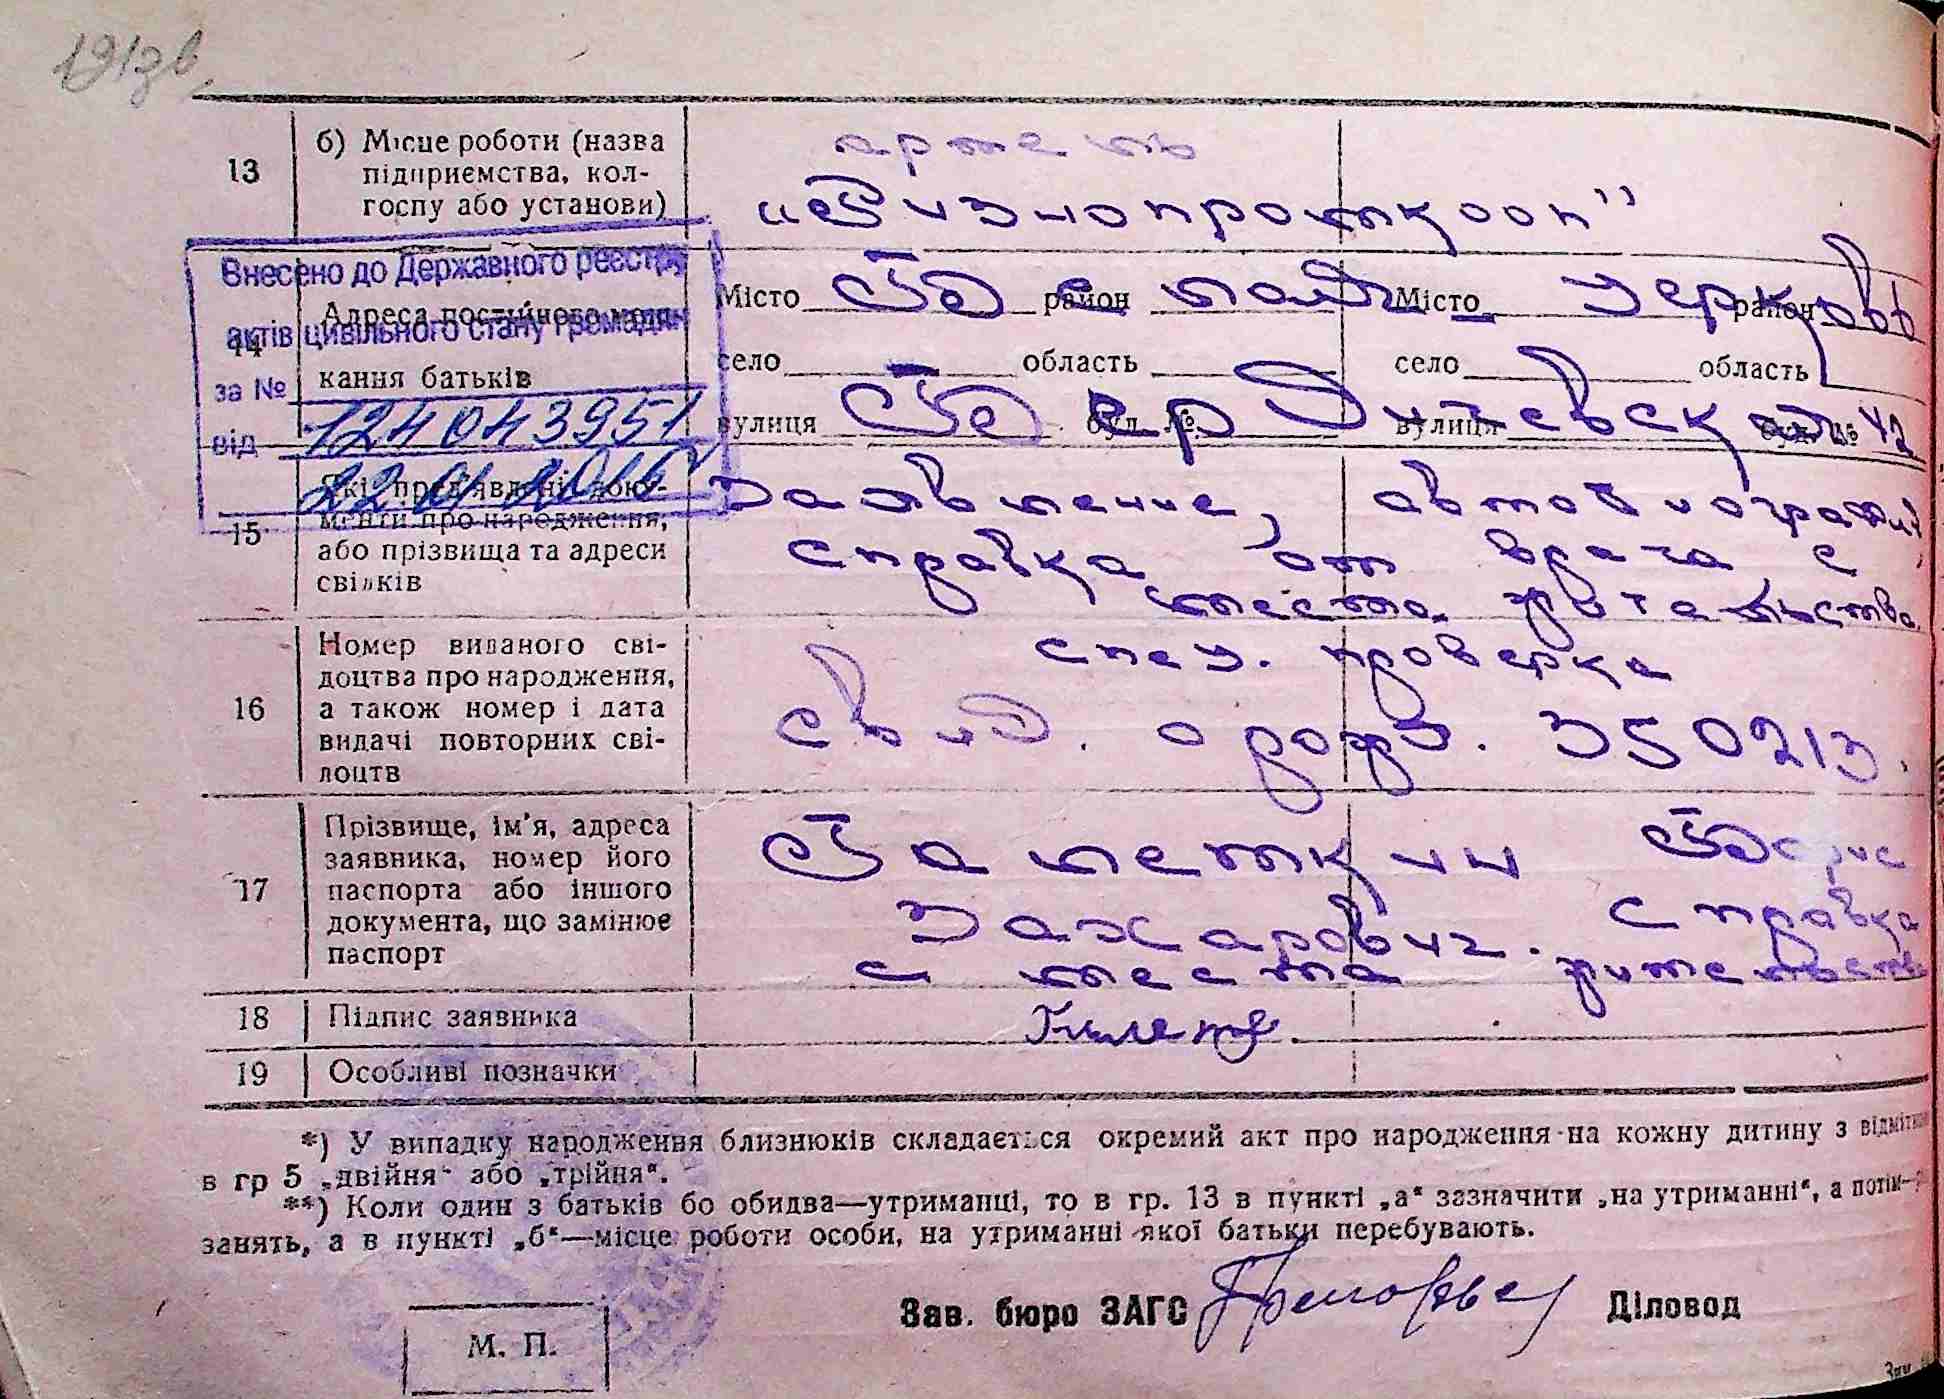 13
б) Місце роботи (назва
підприємства, кол-
госпу або установи)
артель
Внесено до Державного реєстру
актів цивільного стану громадян
за № 124043951
від 22.01.201
14
Адреса постійного меш-
кання батьків
Місто Белая район Місто Церковь район
село область село область
вулиця Бердичевская буд. № вулиця буд. № 42
15
Які пред'явлені доку-
менти про народження,
або прізвища та адреси
свідків
Заявление, автобиография
справка от врача, с
места жительства
спец. проверка
16
Номер виданого сві-
доцтва про народження,
а також номер і дата
видачі повторних сві-
доцтв
свид. о рожд. 350213.
17
Прізвище, ім'я, адреса
заявника, номер його
паспорта або іншого
документа, що замінює
паспорт
Борис
Захарович. справка
с места жительства
18
Підпис заявника
19
Особливі позначки
*) У випадку народження близнюків складається окремий акт про народження на кожну дитину з відміткою
в гр 5 „двійня“ або „трійня“.
**) Коли один з батьків бо обидва—утриманці, то в гр. 13 в пункті „а“ зазначити „на утриманні“, а потім—
занять, а в пункті „б“—місце роботи особи, на утриманні якої батьки перебувають.
Зав. бюро ЗАГС
Діловод
М. П.